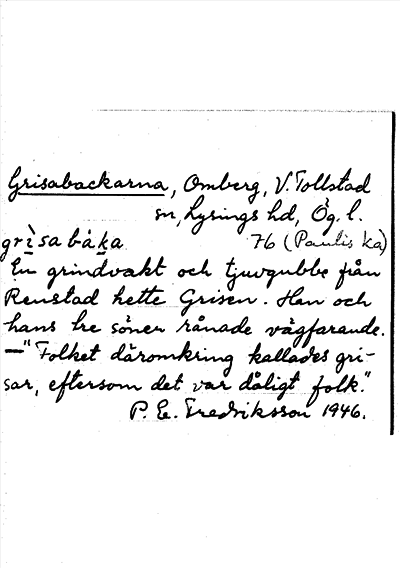 Grisabackarna, Omberg, V. Tollstad
sn, Lysings hd, Ög. l.
grìsabáka 76 (Paulis ka)
En grindvakt och tjuvgubbe från
Renstad hette Grisen. Han och
hans tre söner rånade vägfarande.
—"Folket däromkring kallades gri-
sar, eftersom det var dåligt folk."
P. E. Fredriksson 1946.